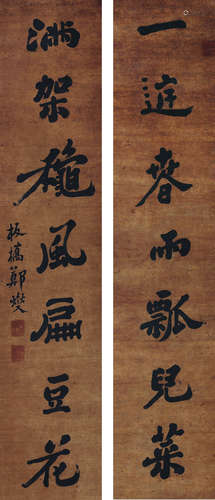 一遊春雨瓢兒菜
滿架龝風扁豆花
板橋鄭燮